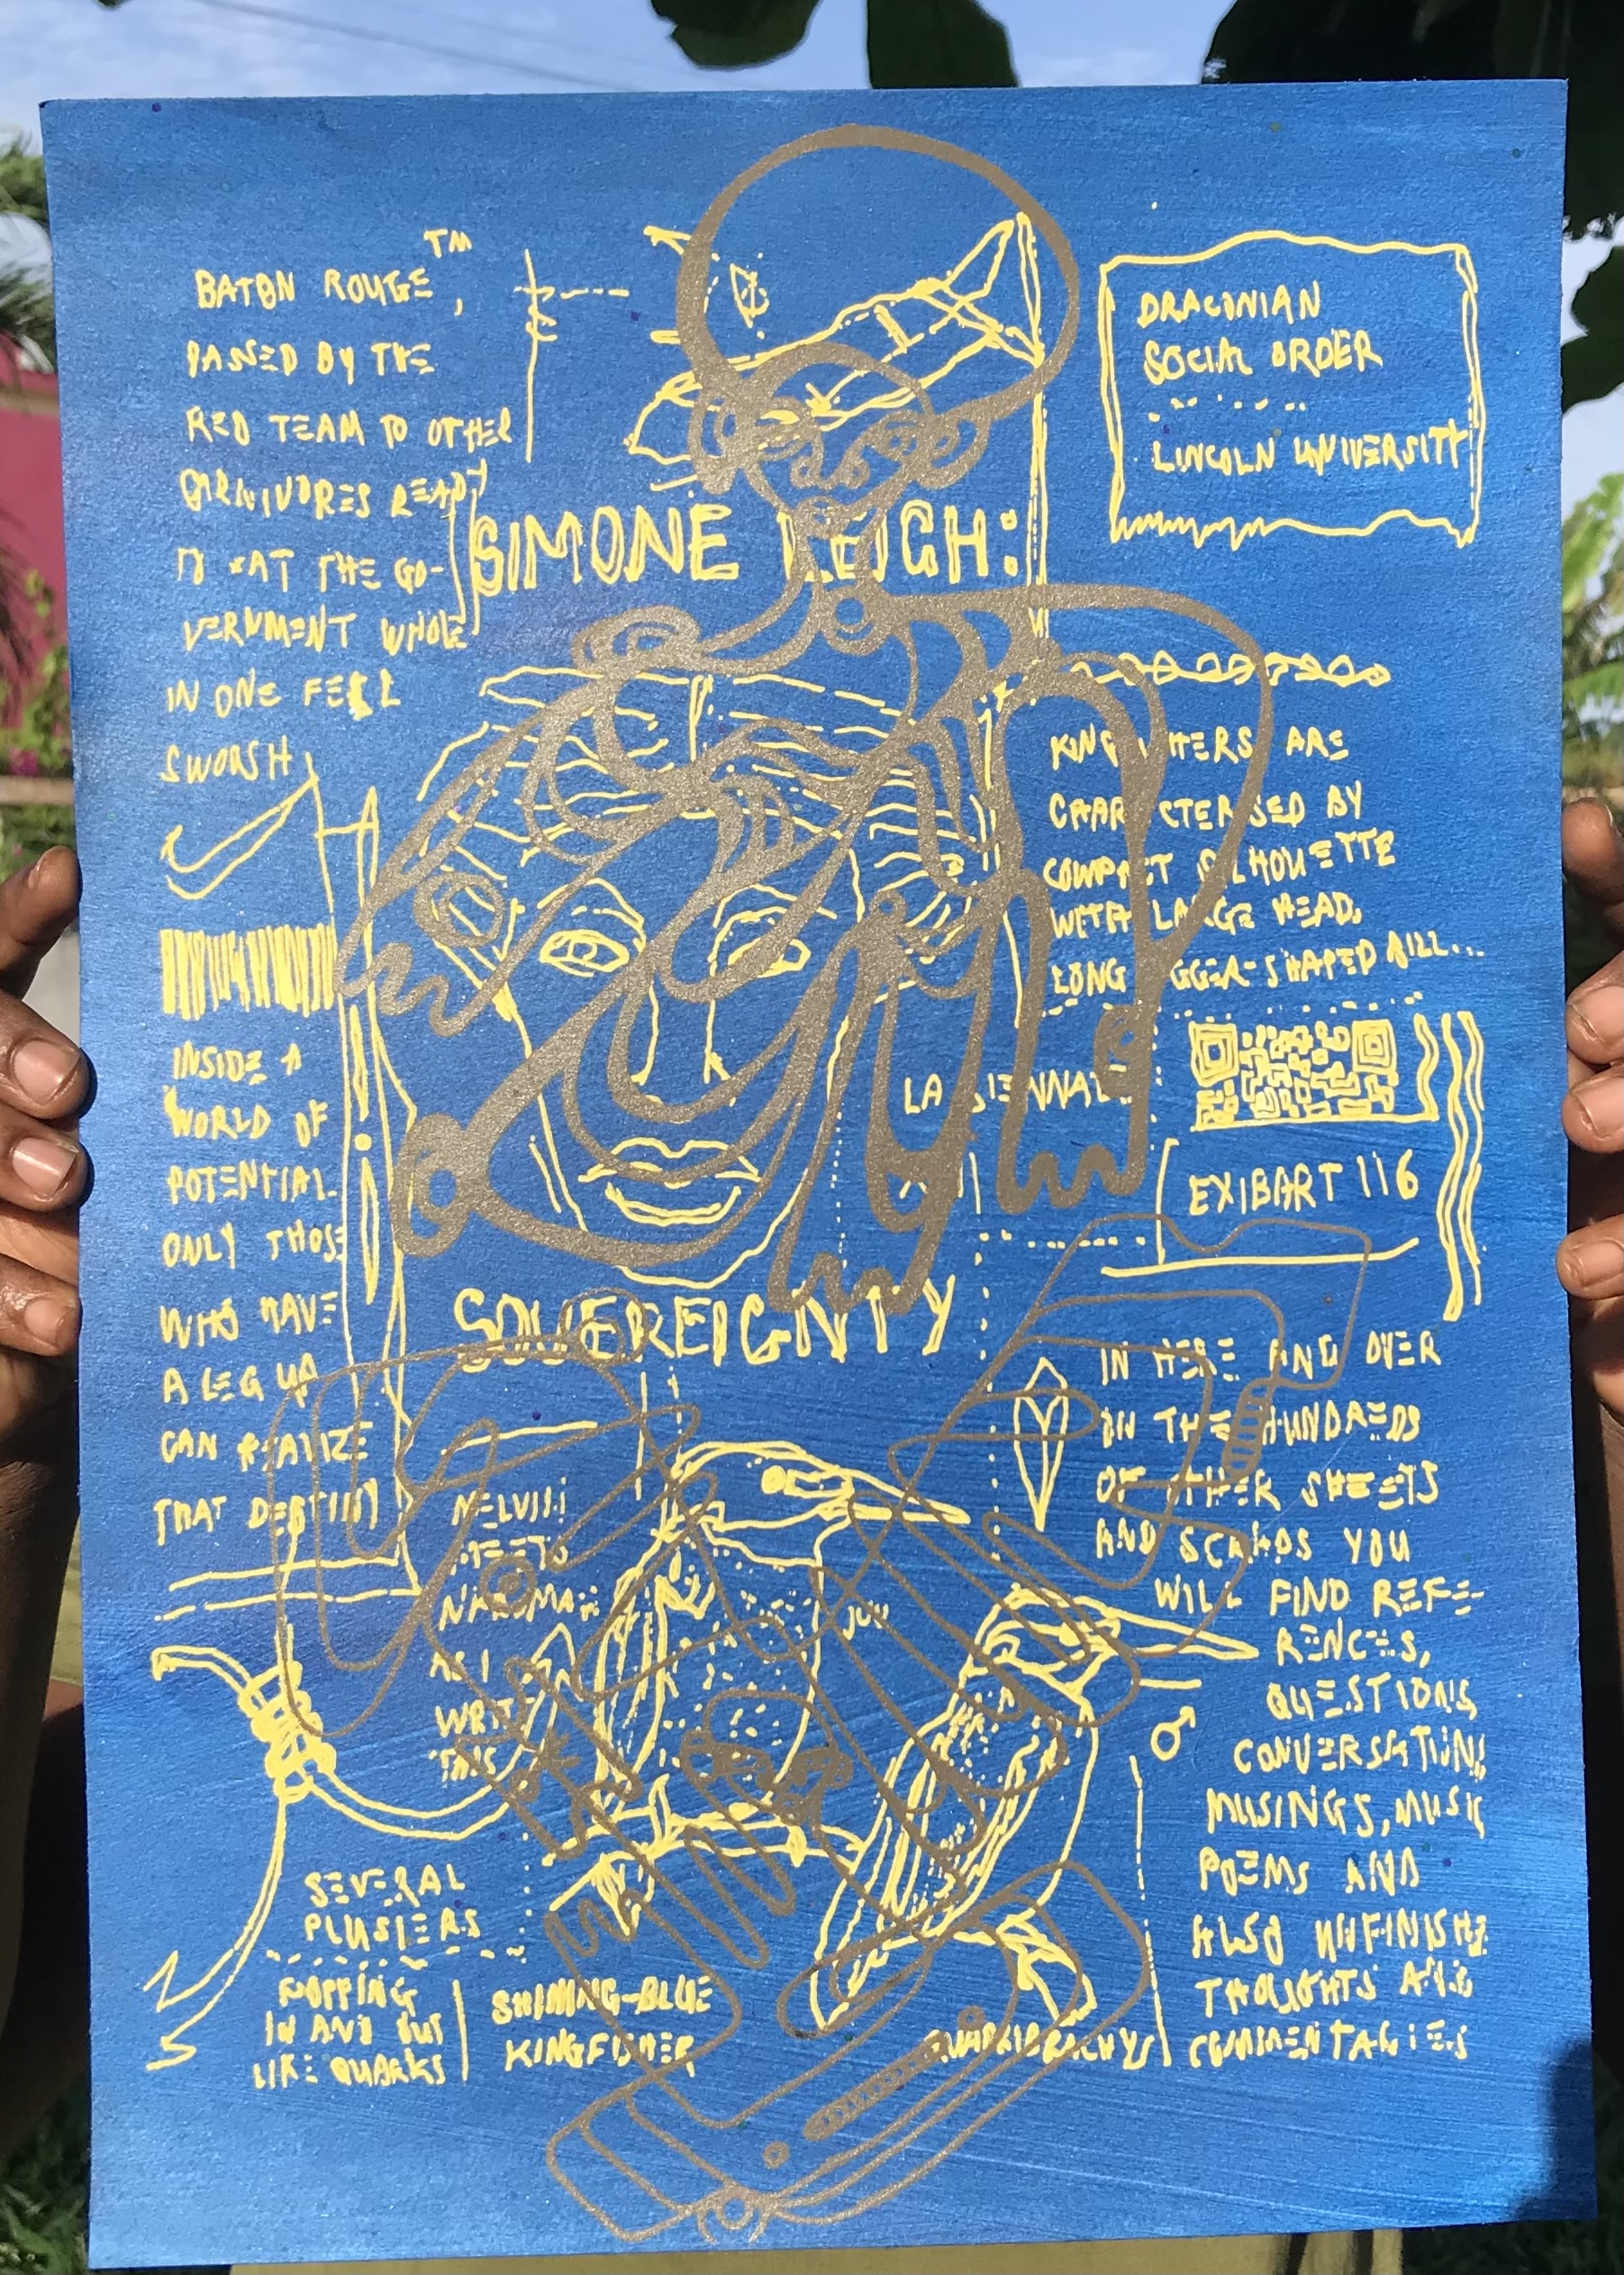 BATON ROUGE™,
PASSED BY THE
RED TEAM TO OTHER
CARNIVORES READY
TO EAT THE GO-
VERNMENT WHOLE
IN ONE FELL
SWOOSH
INSIDE A
WORLD OF
POTENTIAL.
ONLY THOSE
WHO HAVE
A LEG UP
CAN REALIZE
THAT DESTINY
SIMONE LEIGH:
SOVEREIGNTY
DRACONIAN
SOCIAL ORDER
LINCOLN UNIVERSITY
KINGFISHERS ARE
CHARACTERISED BY
COMPACT SILHOUETTE
WITH LARGE HEAD,
LONG DAGGER-SHAPED BILL...
LA BIENNALE
EXIBART 116
IN HERE AND OVER
IN THE HUNDREDS
OF OTHER SHEETS
AND SCRAPS YOU
WILL FIND REFE-
RENCES,
QUESTIONS,
CONVERSATIONS
MUSINGS, MUSIC
POEMS AND
ALSO UNFINISHED
THOUGHTS AND
COMMENTARIES
MEETS
AS I
WRITE
THIS
SEVERAL
PLUSIERS
POPPING
IN AND OUT
LIKE QUARKS
SHINING-BLUE
KINGFISHER